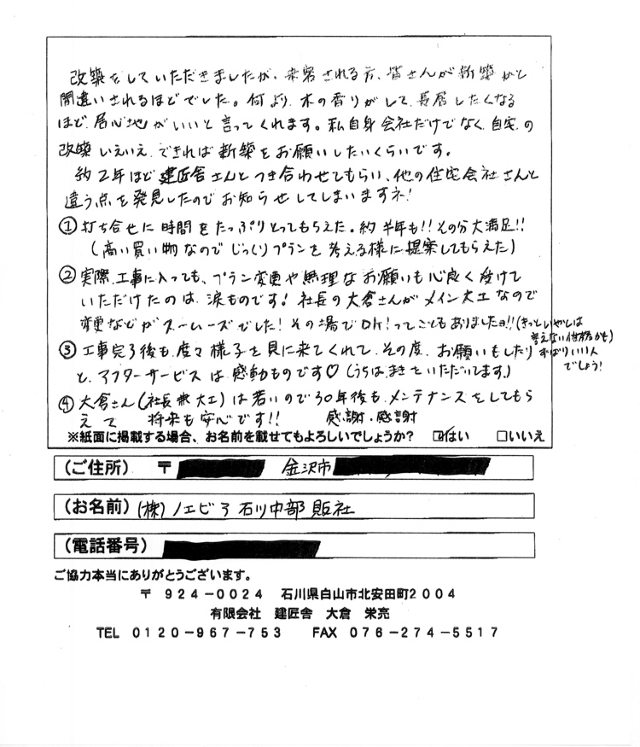 改築をしていただきましたが、来客される方、皆さんが新築かと
間違いされるほどでした。何より、木の香りがして、長居したくなる
ほど、居心地がいいと言ってくれます。私自身会社だけでなく、自宅の
改築いえいえ、できれば新築をお願いしたいくらいです。
約2年ほど建匠舎さんとつき合わせてもらい、他の住宅会社さんと
違う点を発見したのでお知らせしてしまいますネ!
①打ち合せに時間をたっぷりとってもらえた。約半年も!!その分大満足!!
(高い買い物なのでじっくりプランを考える様に提案してもらえた)
②実際、工事に入っても、プラン変更や無理なお願いも心良く受けて
いただけたのは、涙ものです!社長の大倉さんがメイン大工なので
変更などがスムーズでした!その場でOK!ってこともありましたョ!!(きっといやとは
言えない性格かも)
③工事完了後も、度々様子を見に来てくれて、その度、お願いもしたり
ずばりいい人
でしょう!
と、アフターサービスは感動ものです♡(うちは、まきといただいてます)
④大倉さん(社長兼大工)は若いので30年後も、メンテナンスをしてもら
えて 将来も安心です!! 感謝・感謝
※紙面に掲載する場合、お名前を載せてもよろしいでしょうか? ☑はい □いいえ
(ご住所) 〒 金沢市
(お名前) (株)ノエビア石川中部販社
(電話番号)
ご協力本当にありがとうございます。
〒 924-0024 石川県白山市北安田町2004
有限会社 建匠舎 大倉 栄亮
TEL 0120-967-753 FAX 076-274-5517